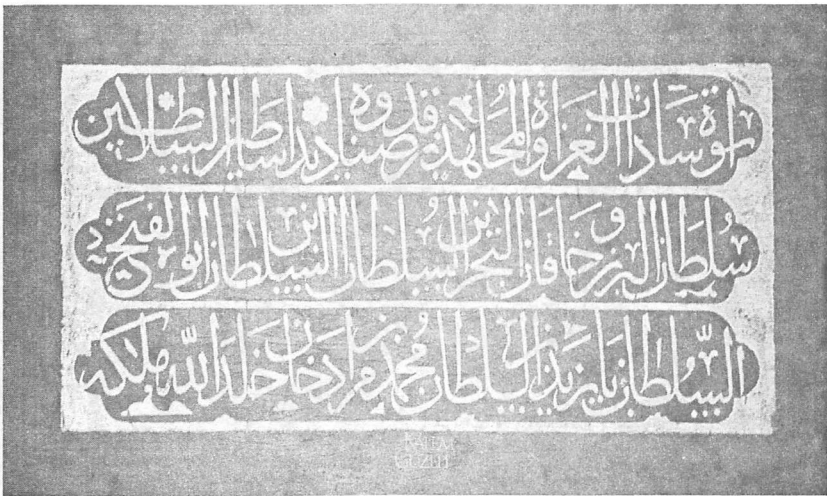 اسوة سادات الغزاة والمجاهدين قدوة صناديد اساطين السلاطين
سلطان البرين وخاقان البحرين السلطان ابن السلطان ابو الفتح
السلطان بايزيد بن السلطان محمد بن مراد خان خلد الله ملكه